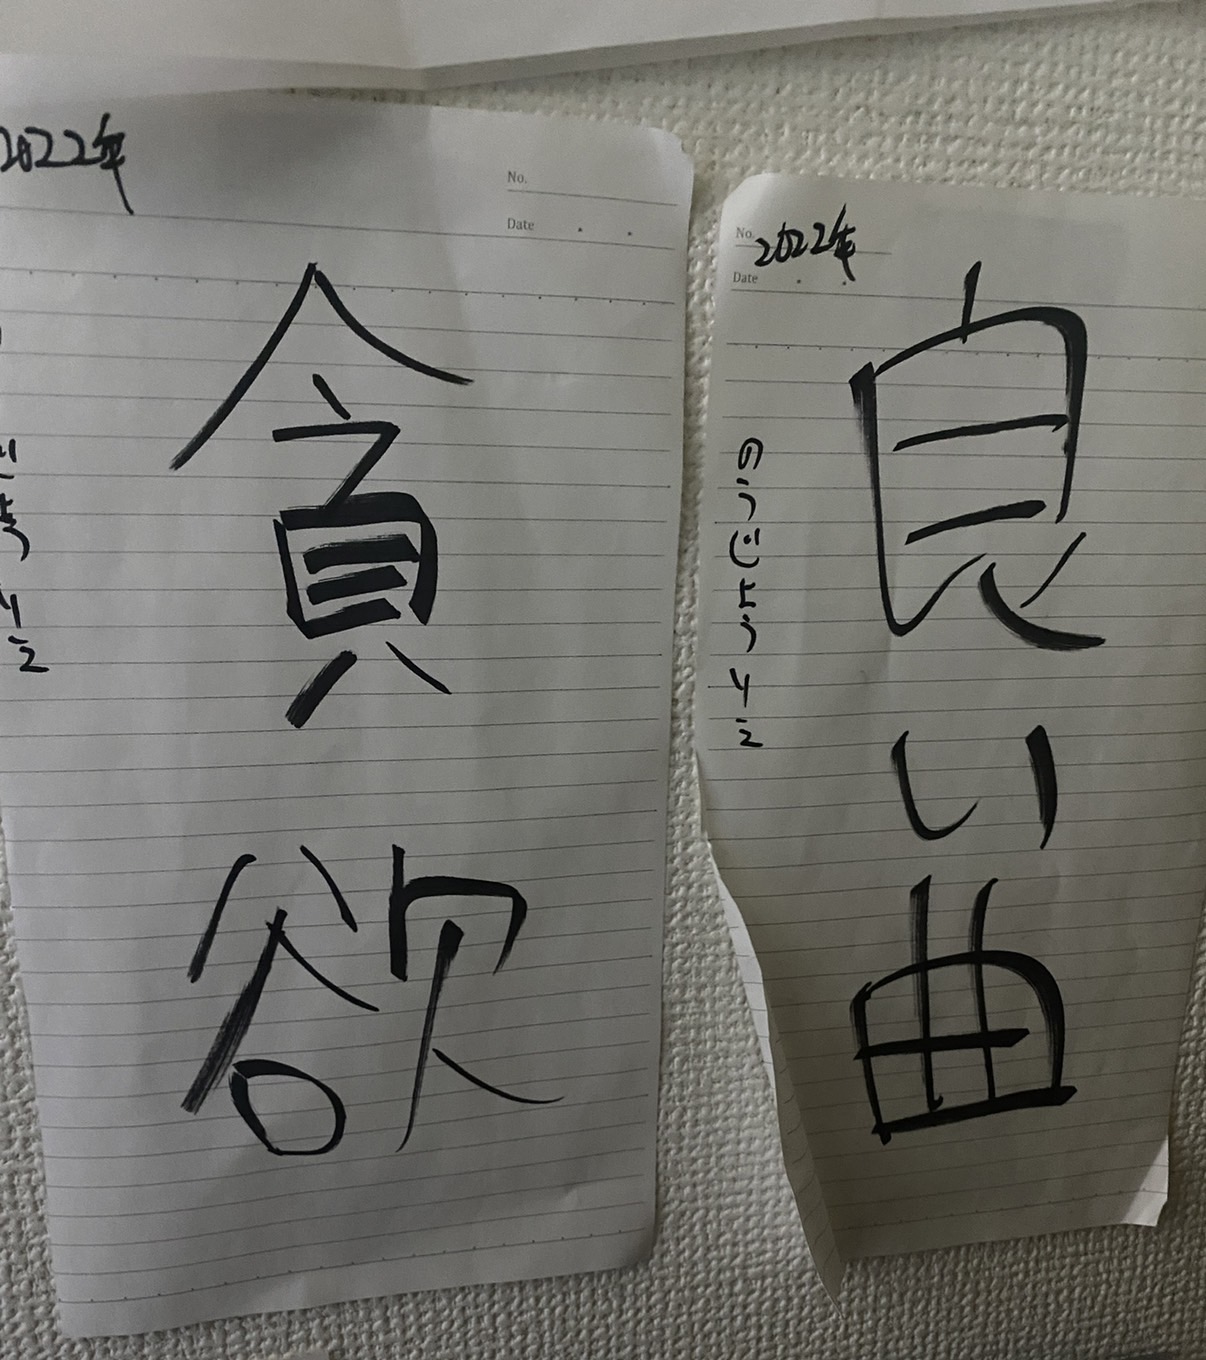 2022年
No.
Date
貪
欲
No. 2022年
Date
良い曲
のうじょうりこ